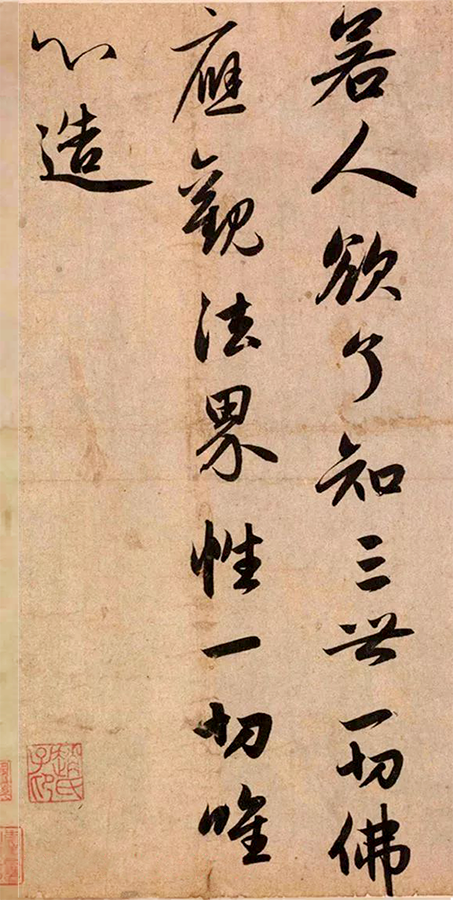 若人欲了知三世一切佛
應觀法界性一切唯
心造
趙氏子昂